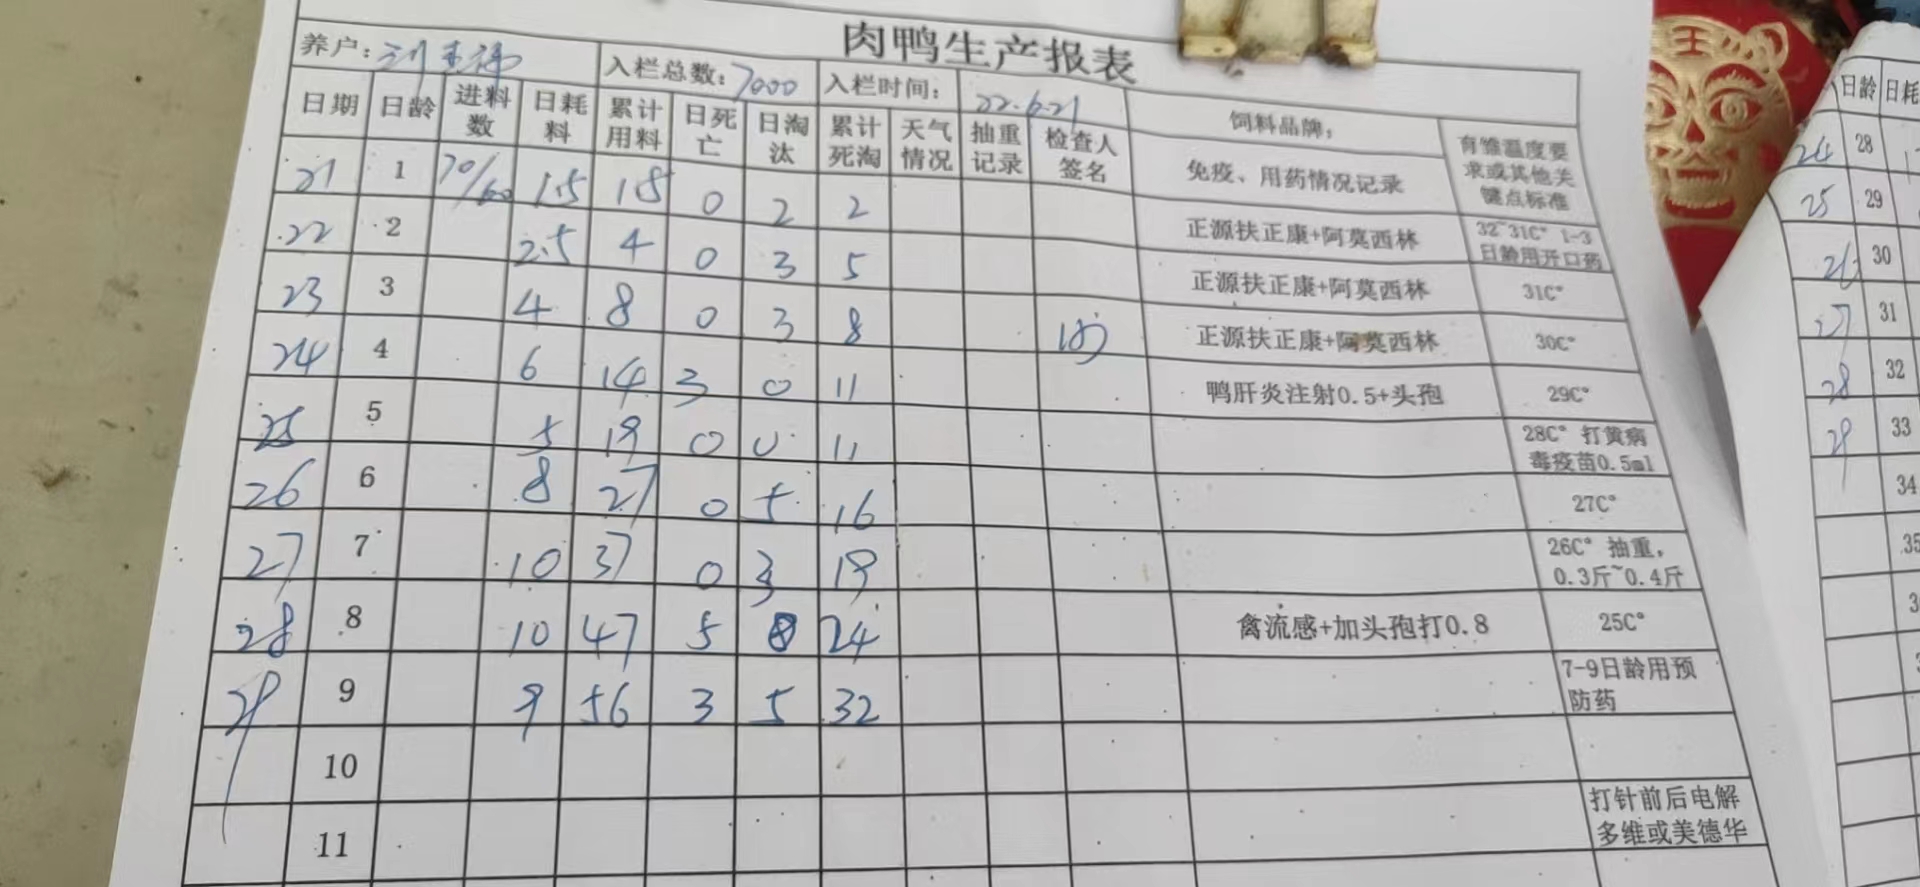 肉鸭生产报表
养户： 入栏总数：7000 入栏时间：22.6.21 饲料品牌； 育雏温度要求或其他关键点标准
日期 日龄 进料数 日耗料 累计用料 日死亡 日淘汰 累计死淘 天气情况 抽重记录 检查人签名 免疫、用药情况记录
21 1 70/60 1.5 1.5 0 2 2 正源扶正康+阿莫西林 32~31C° 1-3日龄用开口药
22 2 2.5 4 0 3 5 正源扶正康+阿莫西林 31C°
23 3 4 8 0 3 8 正源扶正康+阿莫西林 30C°
24 4 6 14 3 0 11 鸭肝炎注射0.5+头孢 29C°
25 5 5 19 0 0 11 28C° 打黄病毒疫苗0.5ml
26 6 8 27 0 5 16 27C°
27 7 10 37 0 3 19 26C° 抽重，0.3斤~0.4斤
28 8 10 47 5 24 禽流感+加头孢打0.8 25C°
29 9 9 56 3 5 32 7-9日龄用预防药
10
11 打针前后电解多维或美德华
日龄 日耗
24 28
25 29
26 30
27 31
28 32
29 33
34
35